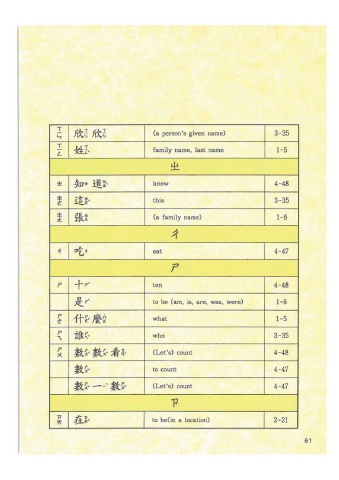 ㄒㄧㄣ 欣欣 (a person's given name) 3-35
ㄒㄧㄥ 姓 family name, last name 1-5
ㄓ
ㄓ 知道 know 4-48
ㄓㄜ 這 this 3-35
ㄓㄤ 張 (a family name) 1-6
ㄔ
ㄔ 吃 eat 4-47
ㄕ
ㄕ 十 ten 4-48
是 to be (am, is, are, was, were) 1-6
ㄕㄜ 什麼 what 1-5
ㄕㄟ 誰 who 3-35
ㄕㄨ 數數看 (Let's) count 4-48
數 to count 4-47
數一數 (Let's) count 4-47
ㄗ
ㄗㄞ 在 to be(in a location) 2-21
61